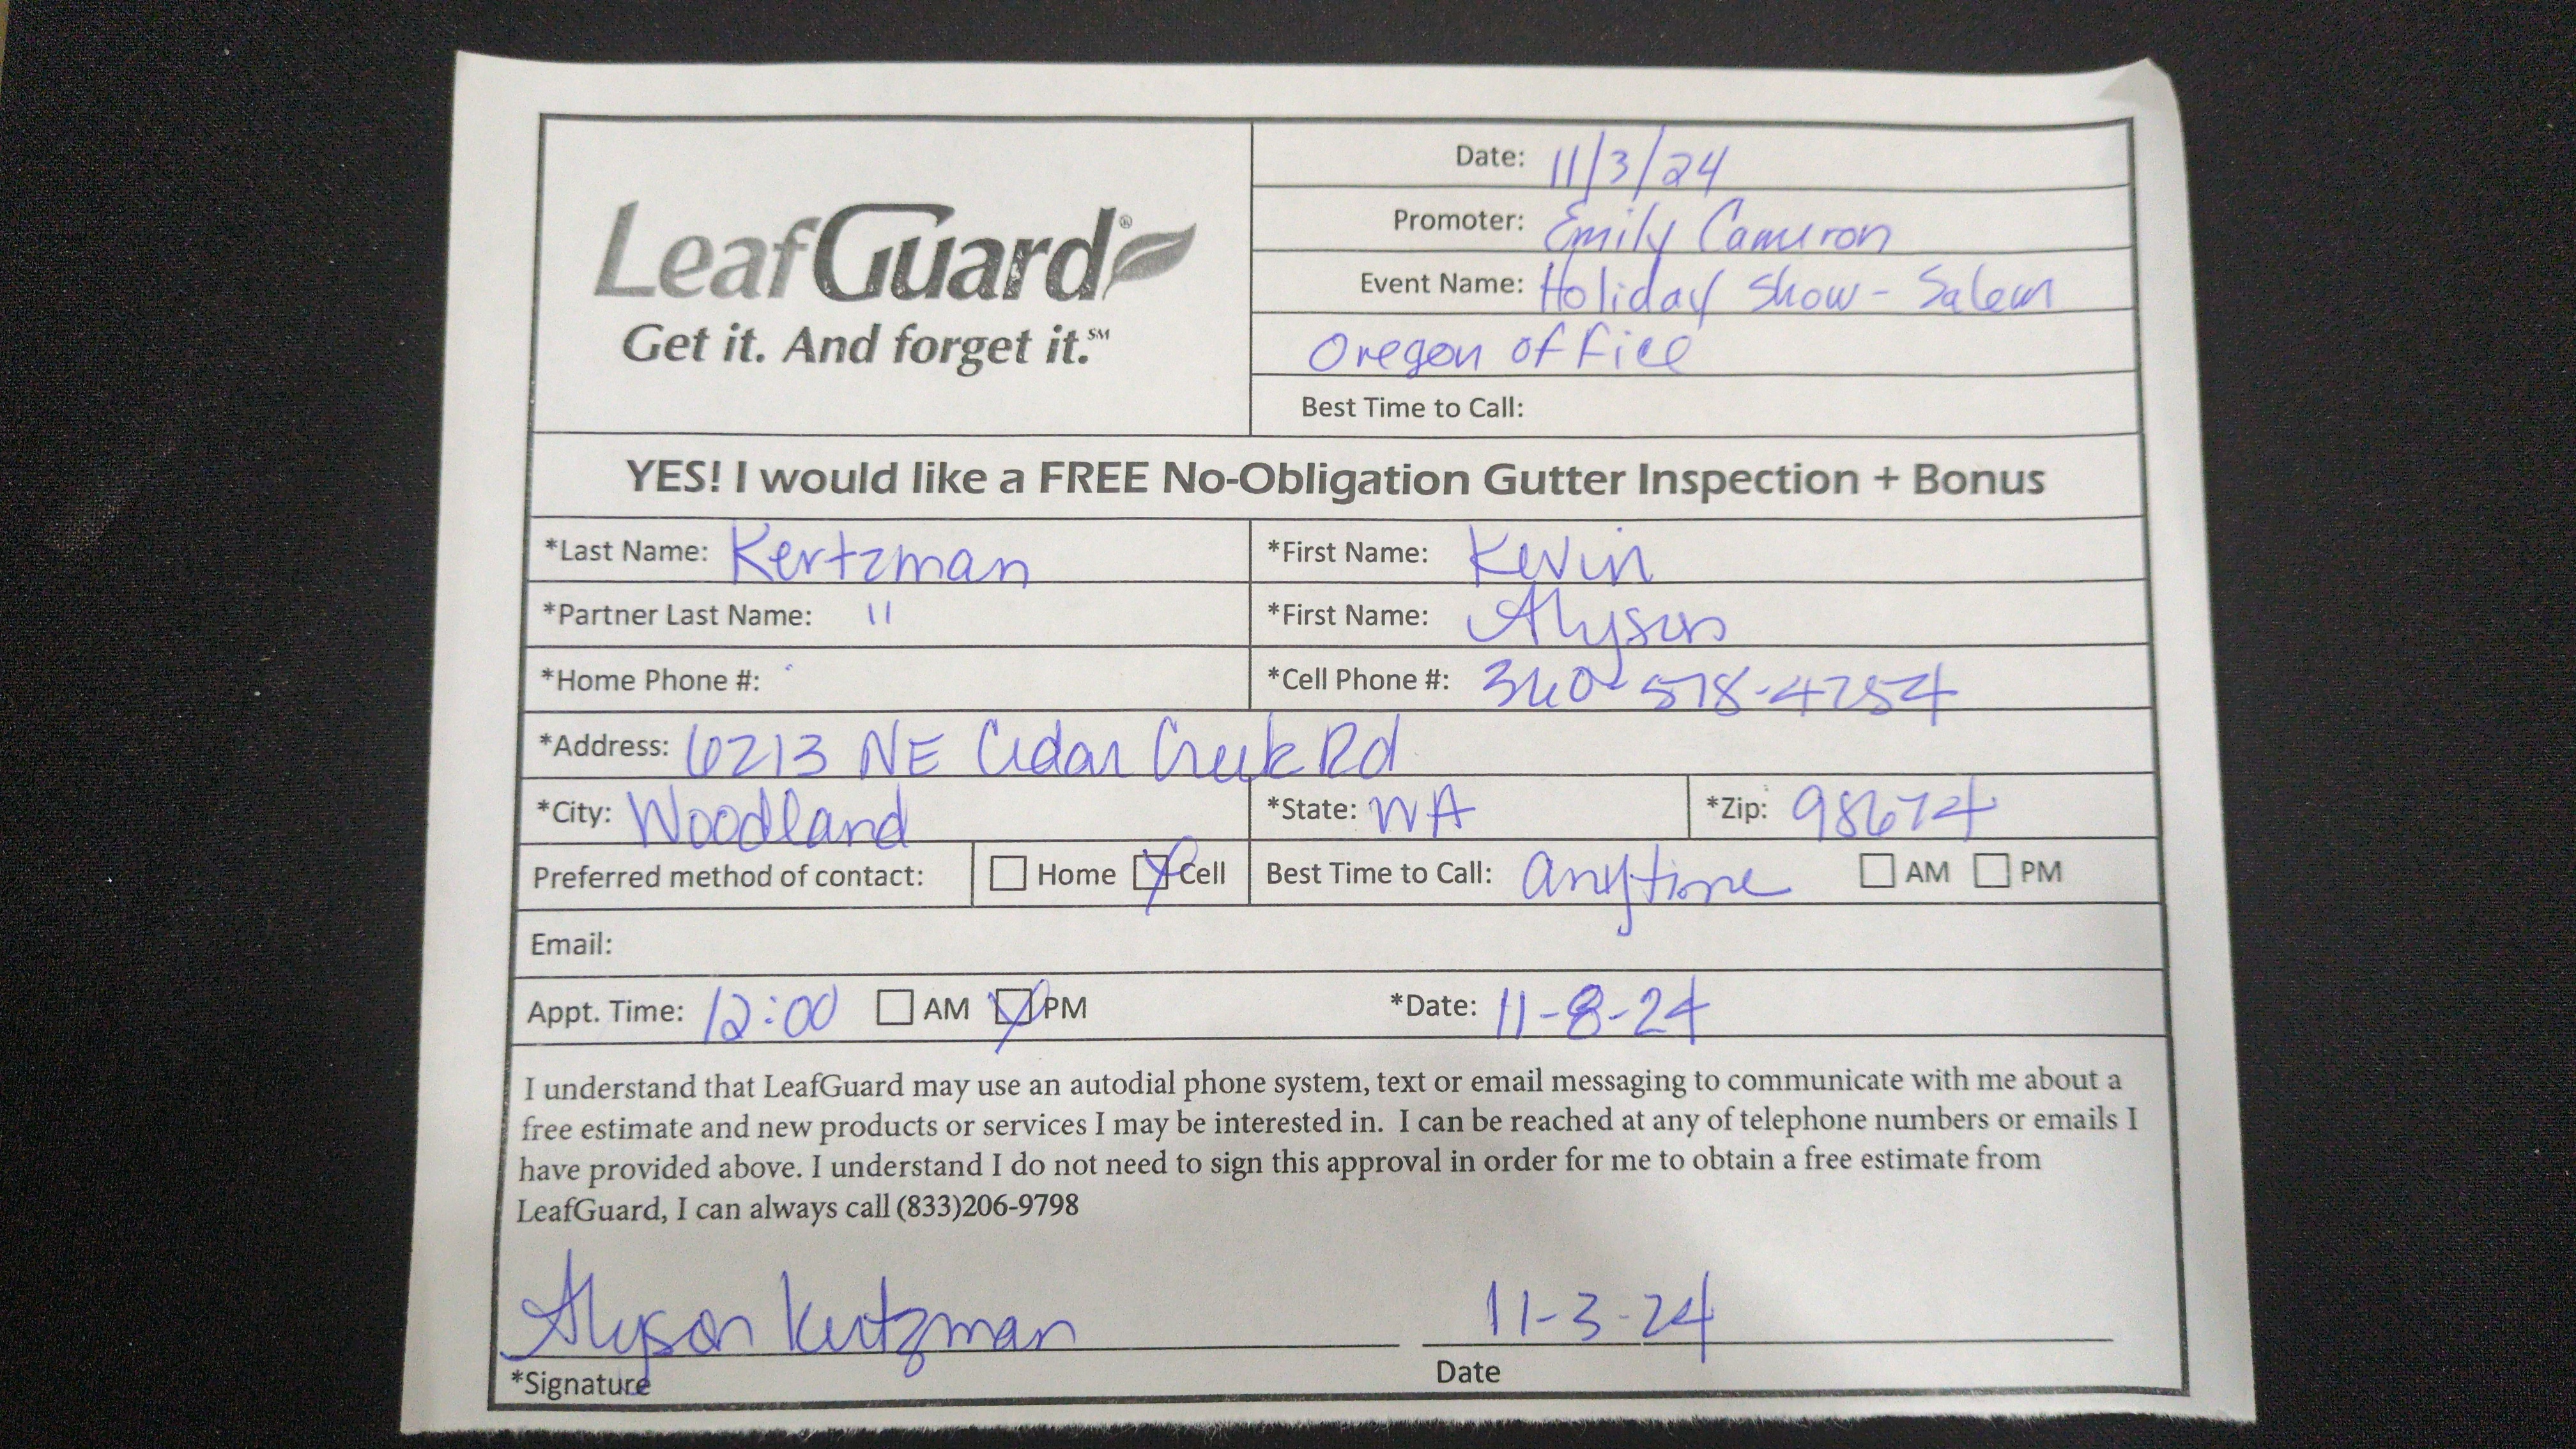 LeafGuard®
Get it. And forget it.℠
Date: 11/3/24
Promoter: Emily Cameron
Event Name: Holiday Show - Salem
Oregon office
Best Time to Call:
YES! I would like a FREE No-Obligation Gutter Inspection + Bonus
*Last Name: Kertzman *First Name: Kevin
*Partner Last Name: " *First Name: Alyson
*Home Phone #: *Cell Phone #: 360 578-4754
*Address: 6213 NE Cedar Creek Rd
*City: Woodland *State: WA *Zip: 98674
Preferred method of contact: Home Cell Best Time to Call: anytime AM PM
Email:
Appt. Time: 12:00 AM PM *Date: 11-8-24
I understand that LeafGuard may use an autodial phone system, text or email messaging to communicate with me about a
free estimate and new products or services I may be interested in. I can be reached at any of telephone numbers or emails I
have provided above. I understand I do not need to sign this approval in order for me to obtain a free estimate from
LeafGuard, I can always call (833)206-9798
Alyson Kertzman 11-3-24
*Signature Date